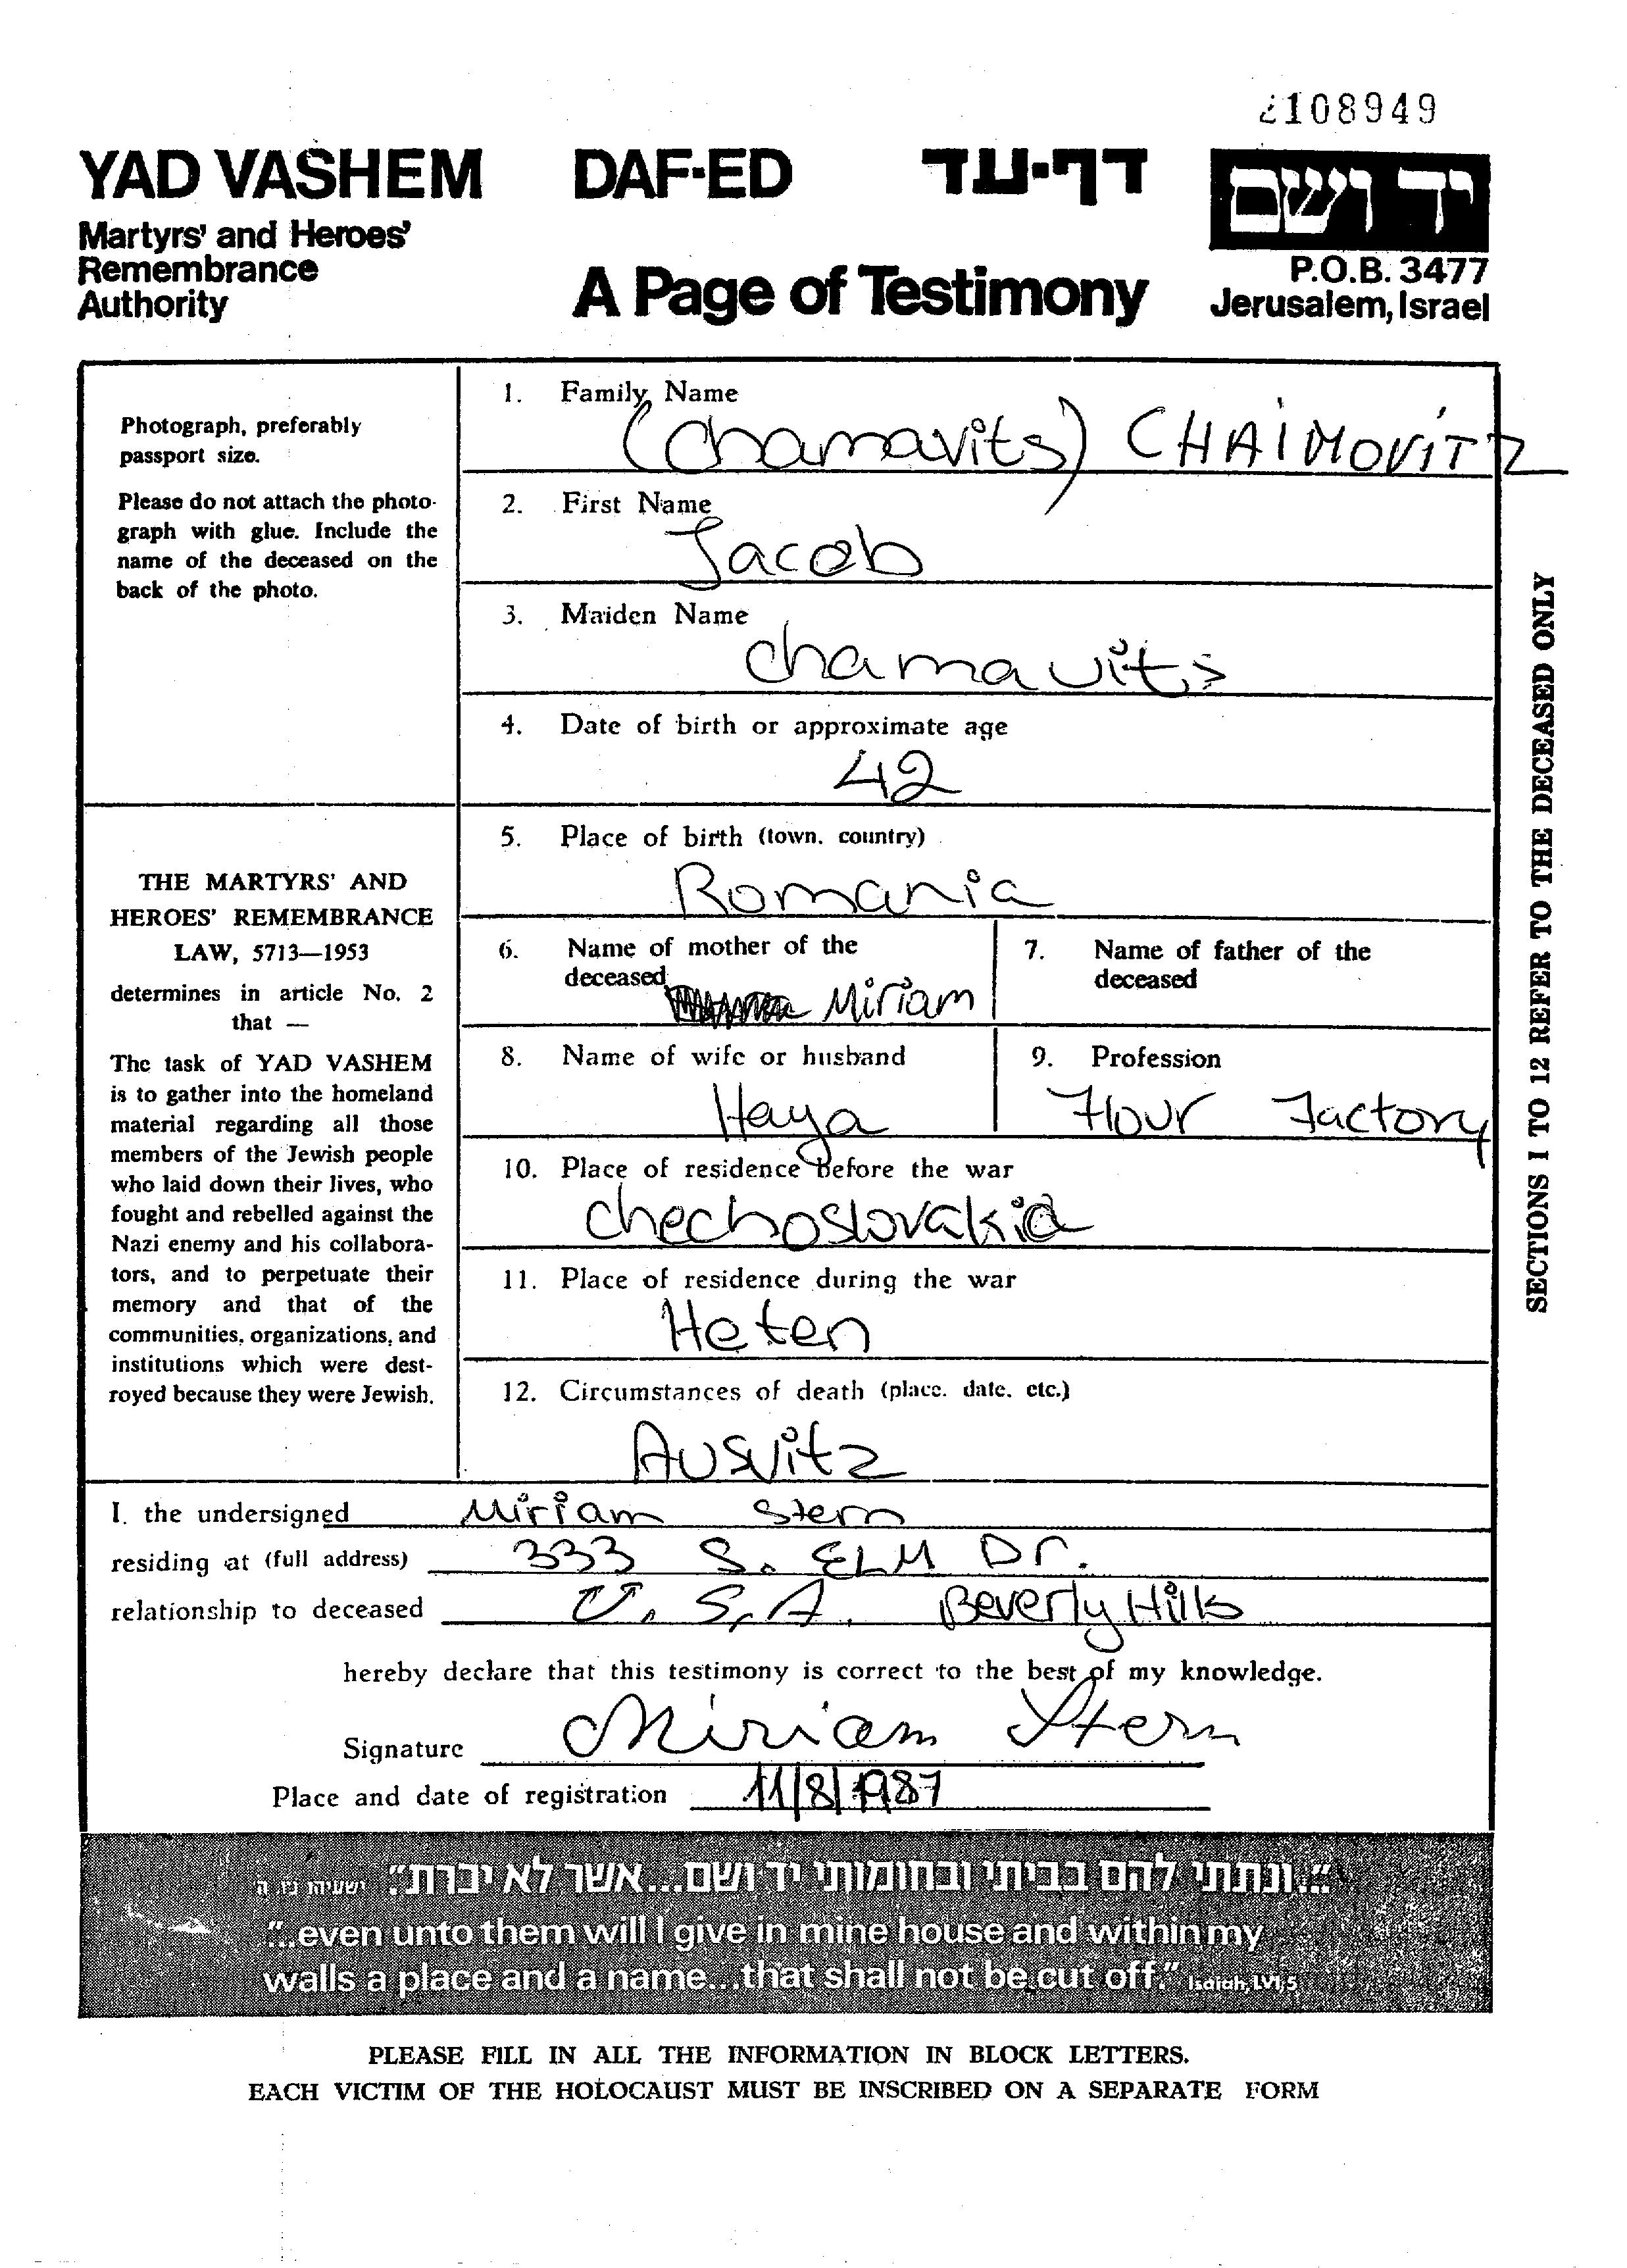 2108949
YAD VASHEM DAF-ED דף-עד יד ושם
Martyrs' and Heroes'
Remembrance
Authority
A Page of Testimony
P.O.B. 3477
Jerusalem, Israel
Photograph, preferably
passport size.
Please do not attach the photo-
graph with glue. Include the
name of the deceased on the
back of the photo.
THE MARTYRS' AND
HEROES' REMEMBRANCE
LAW, 5713—1953
determines in article No. 2
that —
The task of YAD VASHEM
is to gather into the homeland
material regarding all those
members of the Jewish people
who laid down their lives, who
fought and rebelled against the
Nazi enemy and his collabora-
tors, and to perpetuate their
memory and that of the
communities, organizations, and
institutions which were dest-
royed because they were Jewish.
1. Family Name
(Chamavits) CHAIMOVITZ
2. First Name
Jacob
3. Maiden Name
Chamavits
4. Date of birth or approximate age
42
5. Place of birth (town. country)
Romania
6. Name of mother of the
deceased
Miriam
7. Name of father of the
deceased
8. Name of wife or husband
Haya
9. Profession
Flour Factory
10. Place of residence before the war
Chechoslovakia
11. Place of residence during the war
Heten
12. Circumstances of death (place. date. etc.)
Ausvitz
SECTIONS 1 TO 12 REFER TO THE DECEASED ONLY
I. the undersigned Miriam Stern
residing at (full address) 333 S. ELM Dr.
relationship to deceased U.S.A. Beverly Hills
hereby declare that this testimony is correct to the best of my knowledge.
Signature Miriam Stern
Place and date of registration 11/8/1987
"...ונתתי להם בביתי ובחומותי יד ושם...אשר לא יכרת." ישעיהו נו, ה
"...even unto them will I give in mine house and within my
walls a place and a name...that shall not be cut off." Isaiah, LVI, 5
PLEASE FILL IN ALL THE INFORMATION IN BLOCK LETTERS.
EACH VICTIM OF THE HOLOCAUST MUST BE INSCRIBED ON A SEPARATE FORM